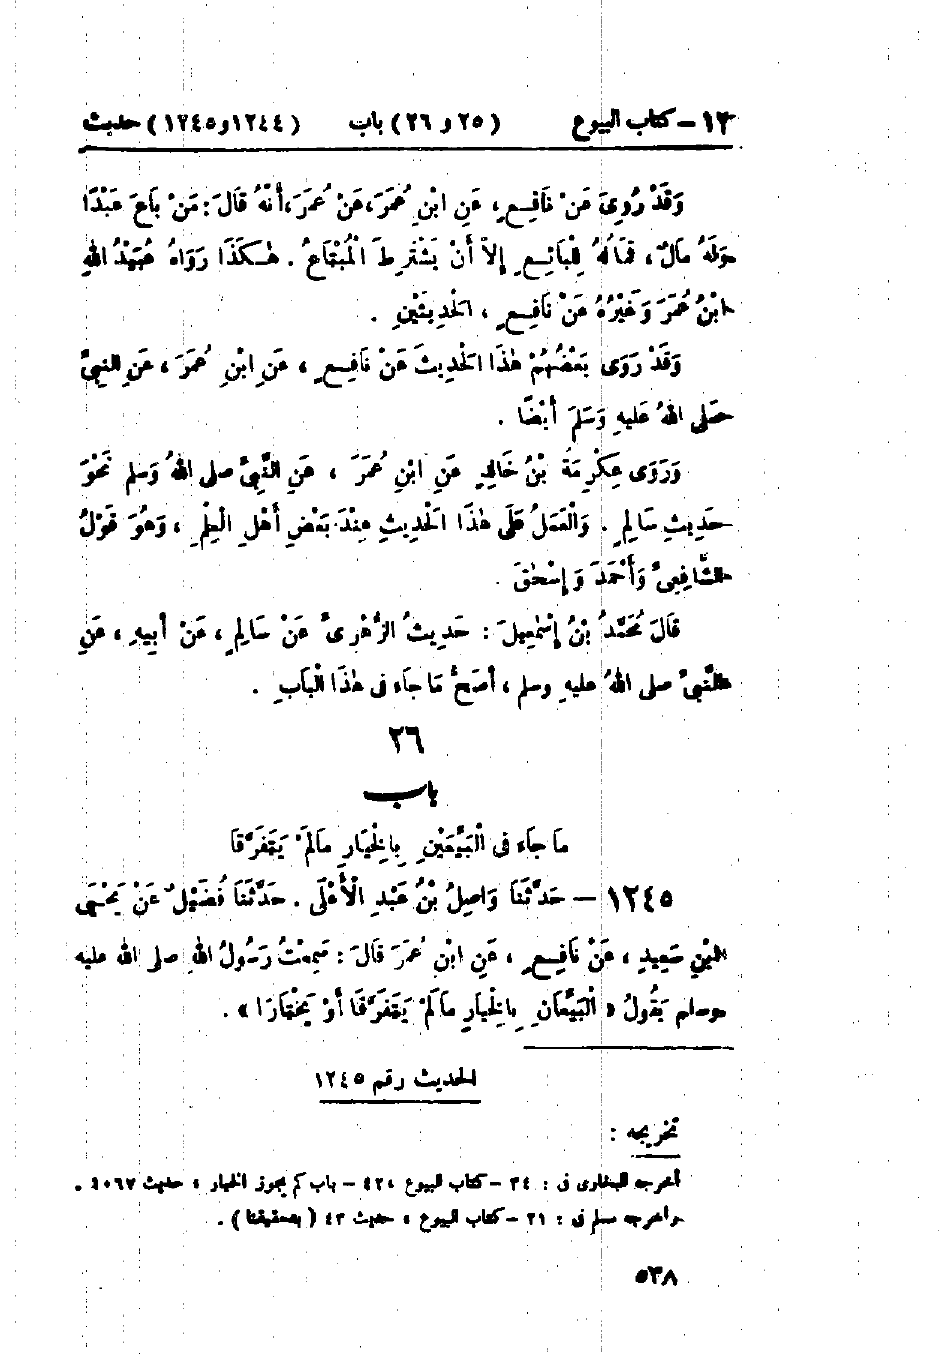 ١٢ - كتاب البيوع (٢٥ و ٢٦) باب (١٢٤٤ و ١٢٤٥) حديث
وَقَدْ رُوِىَ عَنْ نَافِعٍ، عَنِ ابْنِ عُمَرَ، عَنْ عُمَرَ، أَنَّهُ قَالَ: مَنْ بَاعَ عَبْدًا
وَلَهُ مَالٌ، فَمَالُهُ لِلْبَائِعِ إِلاَّ أَنْ يَشْتَرِطَ الْمُبْتَاعُ. هٰكَذَا رَوَاهُ عُبَيْدُ اللهِ
ابْنُ عُمَرَ وَغَيْرُهُ عَنْ نَافِعٍ، الْحَدِيثَيْنِ.
وَقَدْ رَوَى بَعْضُهُمْ هٰذَا الْحَدِيثَ عَنْ نَافِعٍ، عَنِ ابْنِ عُمَرَ، عَنِ النبِىِّ
صَلى اللهُ عَليهِ وَسَلمَ أَيْضًا.
وَرَوَى عِكْرِمَةُ بْنُ خَالِدٍ عَنِ ابْنِ عُمَرَ، عَنِ النَّبِىِّ صلى اللهُ وَسلم نَحْوَ
حَدِيثِ سَالِمٍ. وَالْعَمَلُ عَلَى هٰذَا الْحَدِيثِ عِنْدَ بَعْضِ أَهْلِ الْعِلْمِ، وَهُوَ قَوْلُ
الشَّافِعِىِّ وَأَحْمَدَ وَإِسْحٰقَ.
قَالَ مُحَمَّدُ بْنُ إِسْمٰعِيلَ: حَدِيثُ الزُّهْرِىِّ عَنْ سَالِمٍ، عَنْ أَبِيهِ، عَنِ
النَّبِىِّ صلى اللهُ عليهِ وسلم، أَصَحُّ مَا جَاءَ فِى هٰذَا الْبَابِ.
٢٦
باب
مَا جَاءَ فِى الْبَيِّعَيْنِ بِالْخِيَارِ مَالَمْ يَتَفَرَّقَا
١٢٤٥ - حَدَّثَنَا وَاصِلُ بْنُ عَبْدِ الْأَعْلَى. حَدَّثَنَا فُضَيْلٌ عَنْ يَحْيَى
ابْنِ سَعِيدٍ، عَنْ نَافِعٍ، عَنِ ابْنِ عُمَرَ قَالَ: سَمِعْتُ رَسُولُ اللهِ صلى الله عليه
وسلم يَقُولُ «الْبَيِّعَانِ بِالْخِيَارِ مَالَمْ يَتَفَرَّقَا أَوْ يَخْتَارَا».
الحديث رقم ١٢٤٥
تخريجه:
أخرجه البخارى فى: ٣٤ - كتاب البيوع، ٤٢ - باب كم يجوز الخيار، حديث ١٠٦٧.
وأخرجه مسلم فى: ٢١ - كتاب البيوع، حديث ٤٣ (بتحقيقنا).
٥٣٨